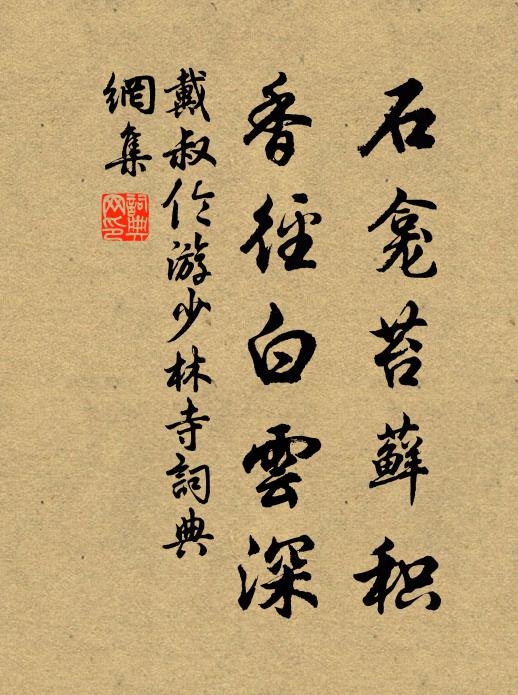 石龕苔蘚积
香徑白雲深
戴叔伦游少林寺詞典
網集
詞典網印